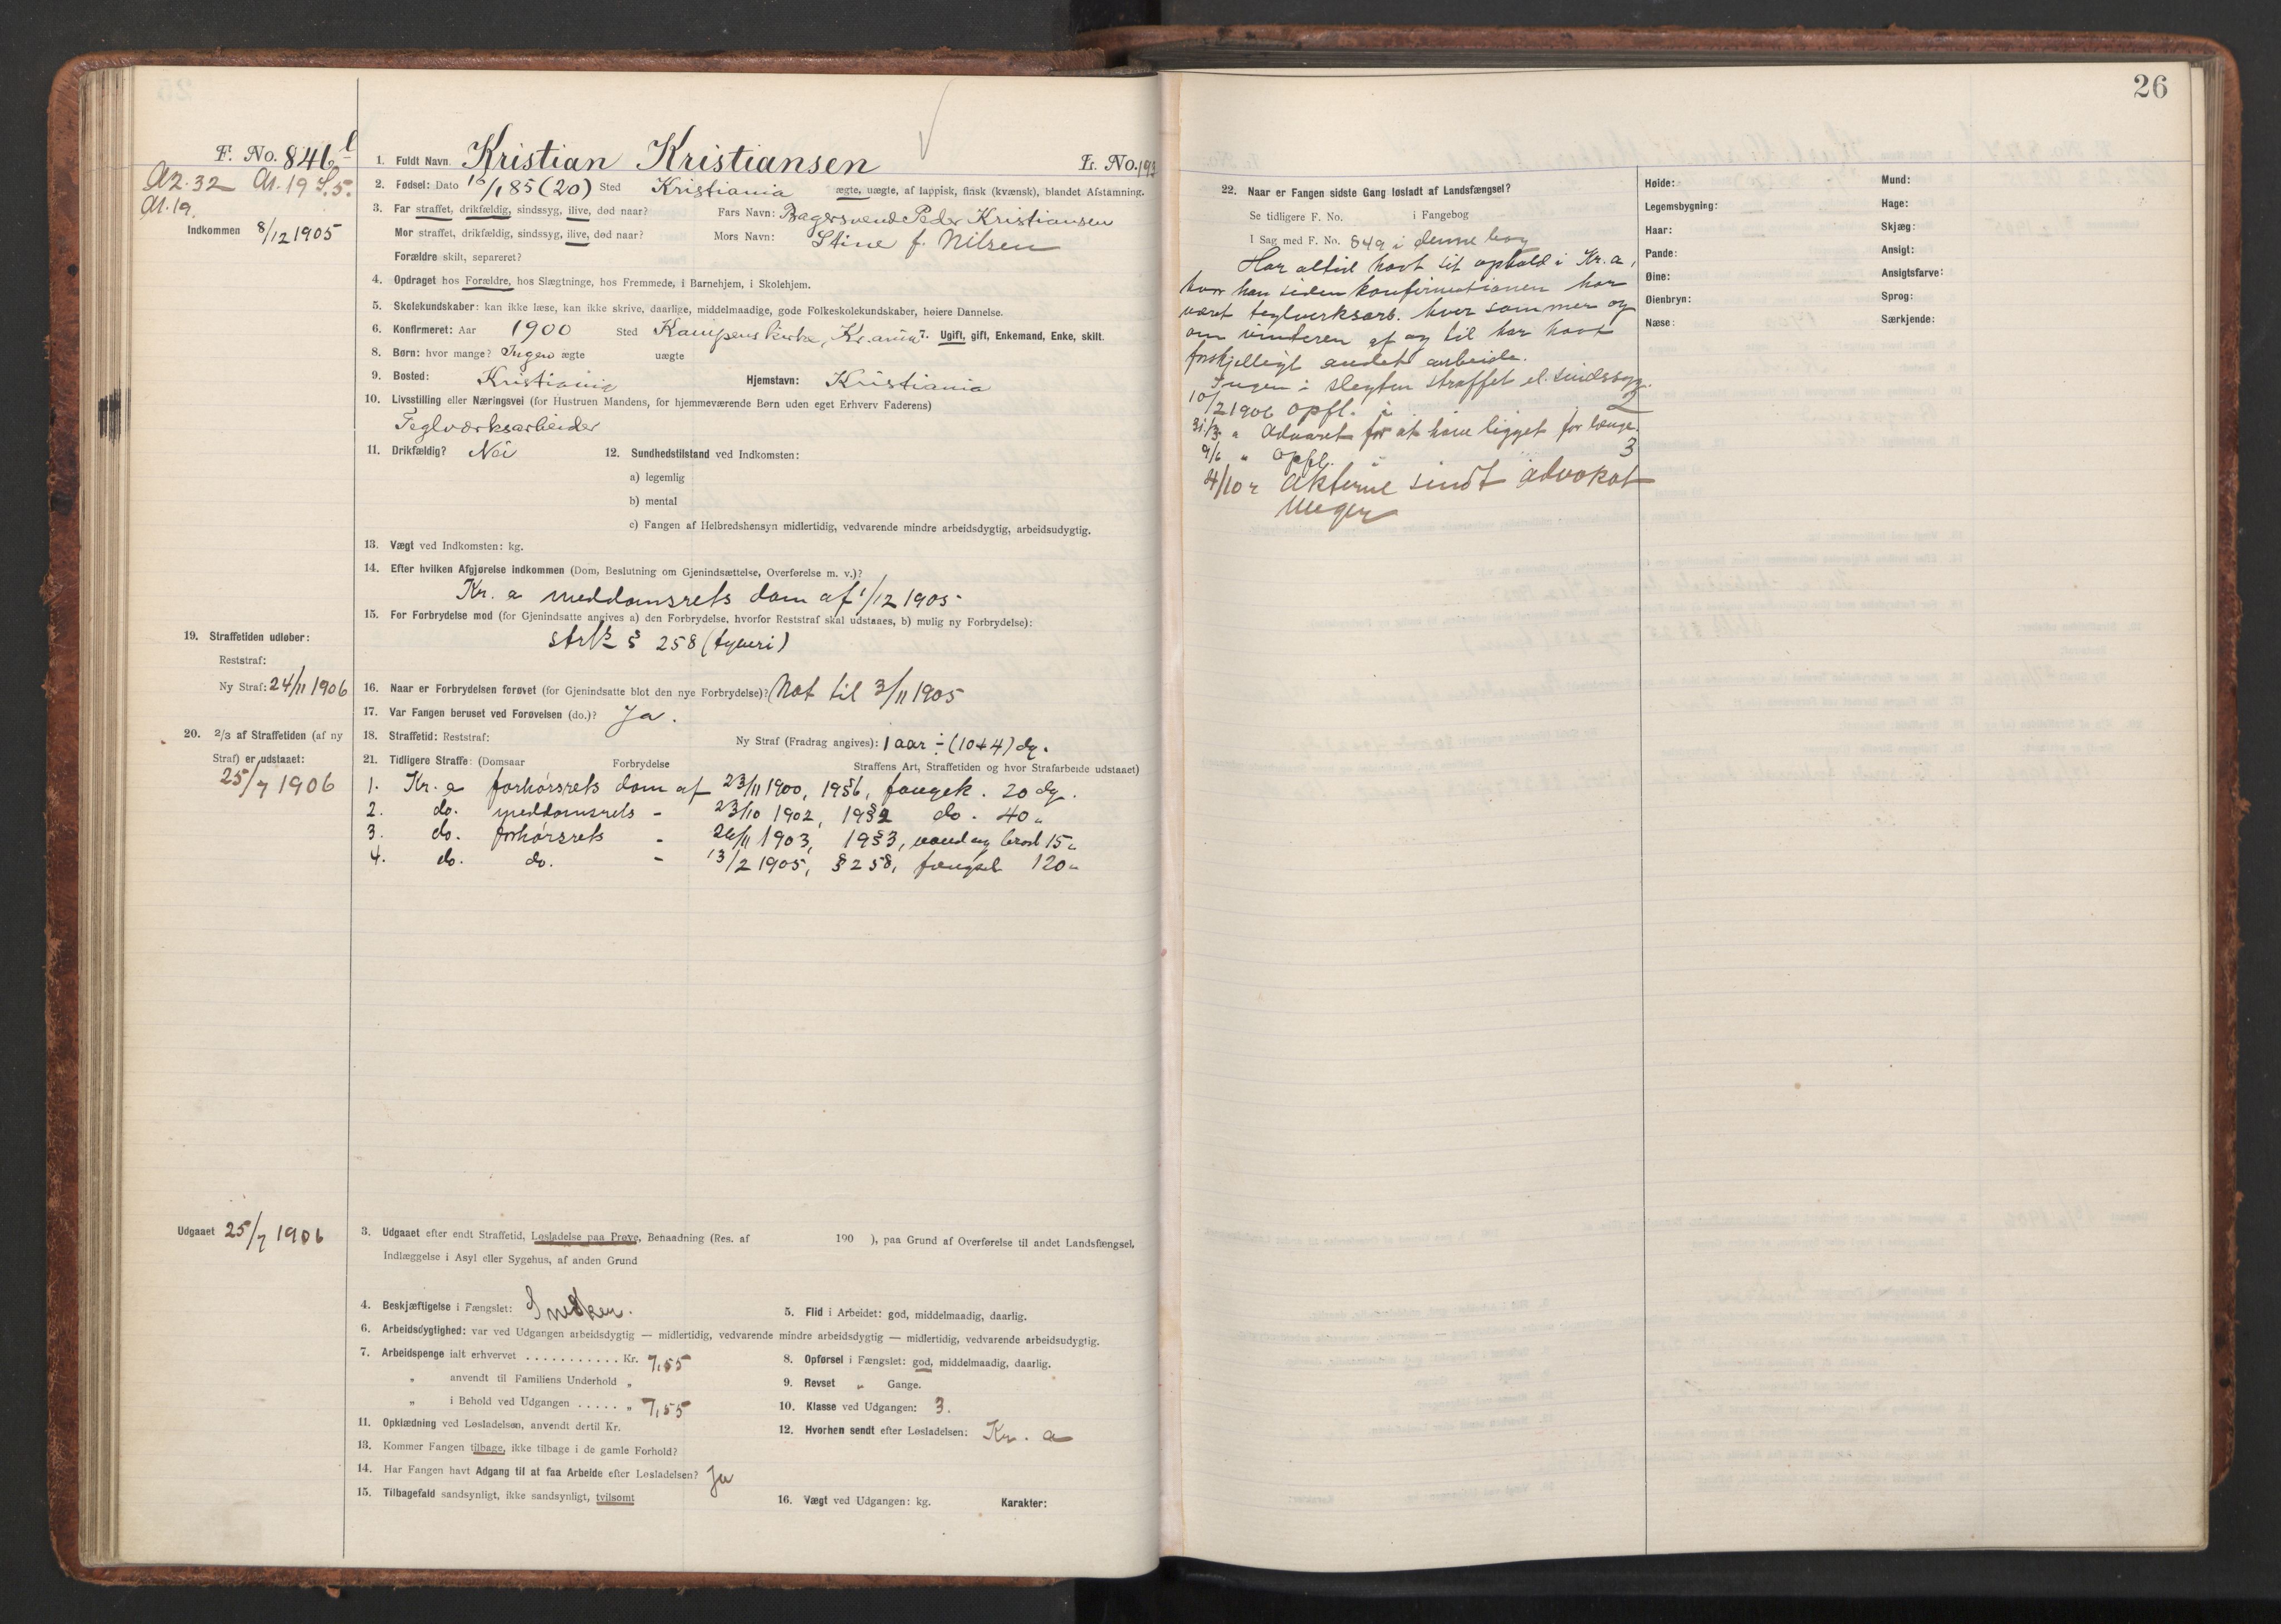 F. No. 846
A2.32 A1.19 S.5.
A1.19.
Indkommen 8/12 1905
1. Fuldt Navn Kristian Kristiansen L. No. 193
2. Fødsel: Dato /1 85 (20) Sted Kristiania ægte, uægte, af lappisk, finsk (kvænsk), blandet Afstamning.
3. Far straffet, drikfældig, sindssyg, ilive, død naar? Fars Navn: Bagersvend Peder Kristiansen
Mor straffet, drikfældig, sindssyg, ilive, død naar? Mors Navn: Stine f. Nilsen
Forældre skilt, separeret?
4. Opdraget hos Forældre, hos Slægtninge, hos Fremmede, i Barnehjem, i Skolehjem.
5. Skolekundskaber: kan ikke læse, kan ikke skrive, daarlige, middelmaadige, gode Folkeskolekundskaber, høiere Dannelse.
6. Konfirmeret: Aar 1900 Sted Kampens kirke, Kr.ania 7. Ugift, gift, Enkemand, Enke, skilt.
8. Børn: hvor mange? Ingen ægte uægte
9. Bosted: Kristiania Hjemstavn: Kristiania
10. Livsstilling eller Næringsvei (for Hustruen Mandens, for hjemmeværende Børn uden eget Erhverv Faderens)
Teglværksarbeider
11. Drikfældig? Nei 12. Sundhedstilstand ved Indkomsten:
a) legemlig
b) mental
c) Fangen af Helbredshensyn midlertidig, vedvarende mindre arbeidsdygtig, arbeidsudygtig.
13. Vægt ved Indkomsten: kg.
14. Efter hvilken Afgjørelse indkommen (Dom, Beslutning om Gjenindsættelse, Overførelse m. v.)?
Kr. a meddomsrets dom af 1/12 1905
15. For Forbrydelse mod (for Gjenindsatte angives a) den Forbrydelse, hvorfor Reststraf skal udstaaes, b) mulig ny Forbrydelse):
strfl. § 258 (tyveri)
19. Straffetiden udløber:
Reststraf:
Ny Straf: 24/11 1906
16. Naar er Forbrydelsen forøvet (for Gjenindsatte blot den nye Forbrydelse)? Nat til 3/11 1905
17. Var Fangen beruset ved Forøvelsen (do.)? Ja.
20. 2/3 af Straffetiden (af ny
Straf) er udstaaet:
25/7 1906
18. Straffetid: Reststraf: Ny Straf (Fradrag angives): 1 aar ÷ (10+4) dg.
21. Tidligere Straffe: (Domsaar Forbrydelse Straffens Art, Straffetiden og hvor Strafarbeide udstaaet)
1. Kr. a forhørsrets dom af 23/11 1900, 19§6, fængsl. 20 dg.
2. do. meddomsrets - 23/10 1902, 19§2 do. 40 "
3. do. forhørsrets - 26/11 1903, 19§3, vand og brød 15 "
4. do. do. - 13/2 1905, § 258, fængsel 120 "
Udgaaet 25/7 1906
3. Udgaaet efter endt Straffetid, Løsladelse paa Prøve, Benaadning (Res. af 190 ), paa Grund af Overførelse til andet Landsfængsel,
Indlæggelse i Asyl eller Sygehus, af anden Grund
4. Beskjæftigelse i Fængslet: Snedker. 5. Flid i Arbeidet: god, middelmaadig, daarlig.
6. Arbeidsdygtighed: var ved Udgangen arbeidsdygtig — midlertidig, vedvarende mindre arbeidsdygtig — midlertidig, vedvarende arbeidsudygtig.
7. Arbeidspenge ialt erhvervet . . . . . . . . . . . Kr. 7,55 8. Opførsel i Fængslet: god, middelmaadig, daarlig.
„ anvendt til Familiens Underhold „ 9. Revset „ Gange.
„ i Behold ved Udgangen . . . . . „ 7,55 10. Klasse ved Udgangen: 3.
11. Opklædning ved Løsladelsen, anvendt dertil Kr. 12. Hvorhen sendt efter Løsladelsen: Kr. a
13. Kommer Fangen tilbage, ikke tilbage i de gamle Forhold?
14. Har Fangen havt Adgang til at faa Arbeide efter Løsladelsen? Ja
15. Tilbagefald sandsynligt, ikke sandsynligt, tvilsomt 16. Vægt ved Udgangen: kg. Karakter:
26
22. Naar er Fangen sidste Gang løsladt af Landsfængsel?
Se tidligere F. No. i Fangebog
I Sag med F. No. 849 i denne bog
Har altid havt sit ophold i Kr.a,
hvor han siden konfirmationen har
været teglverksarb. hver sommer og
om vinteren af og til har havt
forskjelligt andet arbeide.
Ingen i slegten straffet el. sindssyg.
10/2 1906 opfl. i 2
31/3 " Advaret for at have ligget for længe.
9/6 " opfl. i 3
4/10 " Akterne sendt advokat
Meyer
Høide: Mund:
Legemsbygning: Hage:
Haar: Skjæg:
Pande: Ansigt:
Øine: Ansigtsfarve:
Øienbryn: Sprog:
Næse: Særkjende: